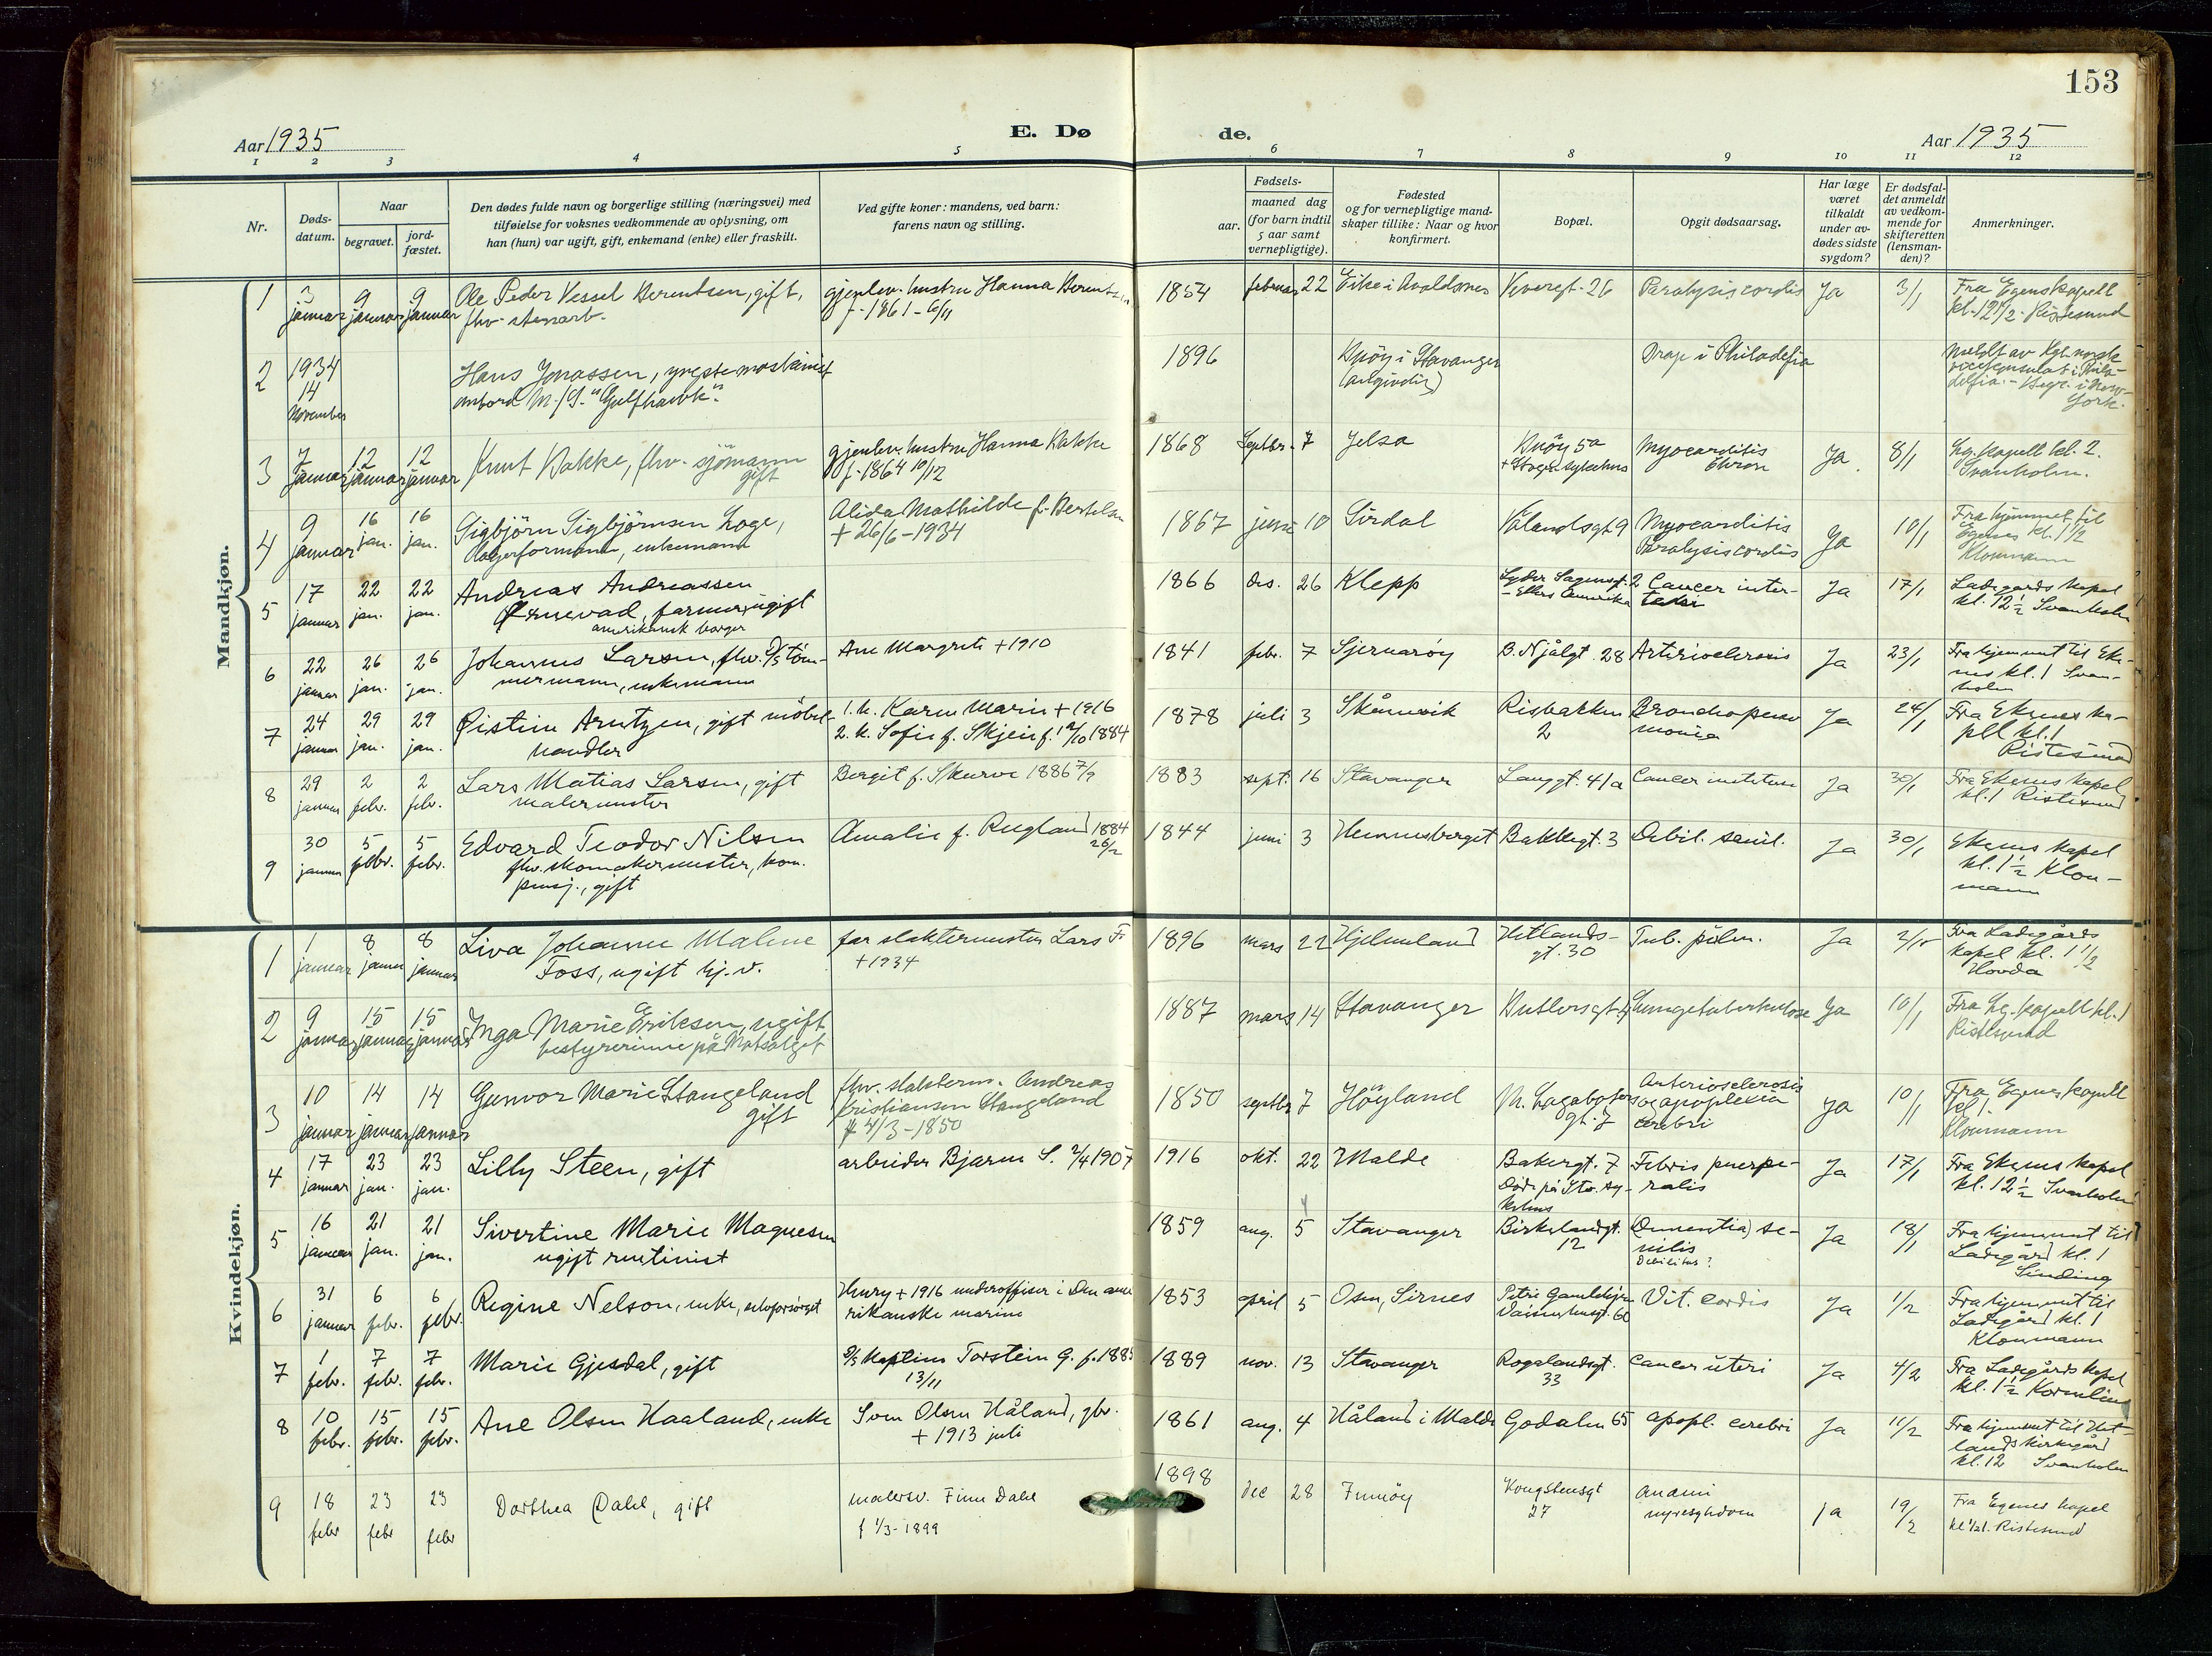 153
Aar 1935
E. Dø
de.
Aar 1935
1 2 3 4 5 6 7 8 9 10 11 12
Nr.
Døds-
datum.
Naar
begravet.
jord-
fæstet.
Den dødes fulde navn og borgerlige stilling (næringsvei) med
tilføielse for voksnes vedkommende av oplysning, om
han (hun) var ugift, gift, enkemand (enke) eller fraskilt.
Ved gifte koner: mandens, ved barn:
farens navn og stilling.
Fødsels-
aar.
maaned dag
(for barn indtil
5 aar samt
vernepligtige).
Fødested
og for vernepligtige mand-
skaper tillike: Naar og hvor
konfirmert.
Bopæl.
Opgit dødsaarsag.
Har læge
været
tilkaldt
under av-
dødes sidste
sygdom?
Er dødsfal-
det anmeldt
av vedkom-
mende for
skifteretten
(lensman-
den)?
Anmerkninger.
Mandkjøn.
1
3 januar
9 januar
9 januar
Ole Peder Vessel Berentsen, gift,
fhv. stenarb.
gjenlev. hustru Hanna Berentsen
f. 1861 - 6/11
1854 februar 22
Eike i Avaldsnes
Veveregt. 26
Paralysis cordis
Ja
3/1
Fra Egenes kapell
kl. 12 1/2. Ristesund
2
1934
14
November
Hans Jonassen, yngste maskinist
ombord M./S. "Gulfhawk".
1896
Buøy i Stavanger
(angivelig)
Drap i Philadelfia
meldt av Kgl. norsk
vicekonsulat i Phila-
delfia. - Begr. i New-
York.
3
7 januar
12 januar
12 januar
Knut Bakke, fhv. sjömann
gift
gjenlev. hustru Hanna Bakke
f. 1864 10/12
1868 Septbr. 7
Jelsa
Buöy 5a
Myocarditis
chron
Ja
8/1
Lg. kapell kl. 2.
Svanholm.
4
9 januar
16 jan.
16 jan.
Sigbjörn Sigbjörnsen Loge,
lagerformann, enkemann
Alida Mathilde f. Bertelsen
+ 26/6 - 1934
1867 juni 10
Sirdal
Vålandsgt 9
Myocarditis
Paralysis cordis
Ja
10/1
Fra hjemmet til
Egenes kl. 1 1/2
Kloumann
5
17 januar
22 jan.
22 jan.
Andreas Andreassen
Ørnevad, farmer, ugift
amerikansk borger
1866 des. 26
Klepp
Lyder Sagensgt. 2
- Ellers Amerika
Cancer inter-
Ja
17/1
Ladegårds kapel
kl. 12 1/2 Svanholm
6
22 januar
26 jan.
26 jan.
Johannes Larsen, fhv. D/S töm-
mermann, enkemann
Ane Margrete + 1910
1841 febr. 7
Sjernarøy
B. Njålgt. 28
Arteriosclerosis
Ja
23/1
Fra hjemmet til Eke-
nes kl. 1 Svan-
holm
7
24 januar
29 jan.
29 jan.
Østein Arntzen, gift möbel-
handler
1. h. Karen Marie + 1916
2. h. Sofie f. Skjeie f. 12/10 1884
1878 juli 3
Skånevik
Risbakken
2
Bronchopneu
monia
Ja
24/1
Fra Ekenes ka-
pell kl. 1
Ristesund
8
29 januar
2 febr.
2 febr.
Lars Matias Larsen, gift
malermester
Bergit f. Skurve 1886 7/9
1883 sept. 16
Stavanger
Langgt. 41a
Cancer
Ja
30/1
Fra Ekenes kapel
kl. 1 Ristesund
9
30 januar
5 febr.
5 febr.
Edvard Teodor Nilsen
fhv. skomakermester, kom.
pensj., gift
Amalie f. Rugland 1884
26/2
1844 juni 3
Hemnesberget
Bakkegt. 3
Debil. senil.
Ja
30/1
Ekenes kapel
kl. 1 1/2 Klou-
mann
Kvindekjøn.
1
1 januar
8 januar
8 januar
Liva Johanne Malene
Foss, ugift hj. v.
far slaktermester Lars F.
+ 1934
1896 mars 22
Hjelmeland
Hetlands-
gt. 30
Tub. pulm.
Ja
Fra Ladegårds
kapel kl. 1 1/2
Hovda
2
9 januar
15 januar
15 januar
Inga Marie Eriksen, ugift
bestyrerinne på Matsalget
1887 mars 14
Stavanger
Lungetuberkulose
Ja
10/1
Fra Lg. kapell kl. 1
Ristesund
3
10 januar
14 januar
14 januar
Gunvor Marie Stangeland
gift
fhv. slakterm. Andreas
Kristiansen Stangeland
f 4/3 - 1850
1850 septbr 7
Höyland
M. Lagabøters
gt. 7
Arteriosclerosis
og apoplexia
cerebri
Ja
10/1
Fra Egenes kapell
kl. 1.
Kloumann
4
17 januar
23 jan.
23 jan.
Lilly Steen, gift
arbeider Bjarne S. 2/4 1907
1916 okt. 22
Malde
Bakergt. 7
Död på Stv. sy-
kehus
Febris puerpe-
ralis
Ja
17/1
Fra Ekenes kapel
kl. 12 1/2 Svanholm
5
16 januar
21 jan.
21 jan.
Sivertine Marie Magnesen
ugift rentenist
1859 aug. 5
Stavanger
Birkelandgt.
12
(Dementia) se-
nilis
Debilitas?
Ja
18/1
Fra hjemmet til
Ladegård kl. 1
Sinding
6
31 januar
6 febr.
6 febr.
Regine Nelson, enke, selvforsörget
Henry + 1916 underoffiser i Den ame
rikanske marine
1853 april 5
Osen, Sirnes
Petri Gamlehjem
Vaisenhusgt. 60
Vit. cordis
Ja
1/2
Fra hjemmet til
Ladegård kl. 1
Kloumann
7
1 febr.
7 febr.
7 febr.
Marie Gjesdal, gift
D/S kaptein Torstein G. f. 1885
13/11
1889 nov. 13
Stavanger
Rogalandsgt.
33
Cancer uteri
Ja
4/2
Fra Ladegårds kapel
kl. 1 1/2 Kornelius
8
10 febr.
15 febr.
15 febr.
Ane Olsen Haaland, enke
Sven Olsen Håland, gbr.
+ 1913 juli
1861 aug. 4
Håland i Malde
Godalen 65
apopl. cerebri
Ja
11/2
Fra hjemmet til Het-
lands kirkegård
kl. 12 Svanholm
9
18 febr
23 febr
23 febr
Dorthea Dahl, gift
malersv. Finn Dahl
f 1/3 - 1899
1898 dec 28
Finnöy
Kongstensgt
27
nyresykdom
Ja
19/2
Fra Egenes kapel
Ristesund